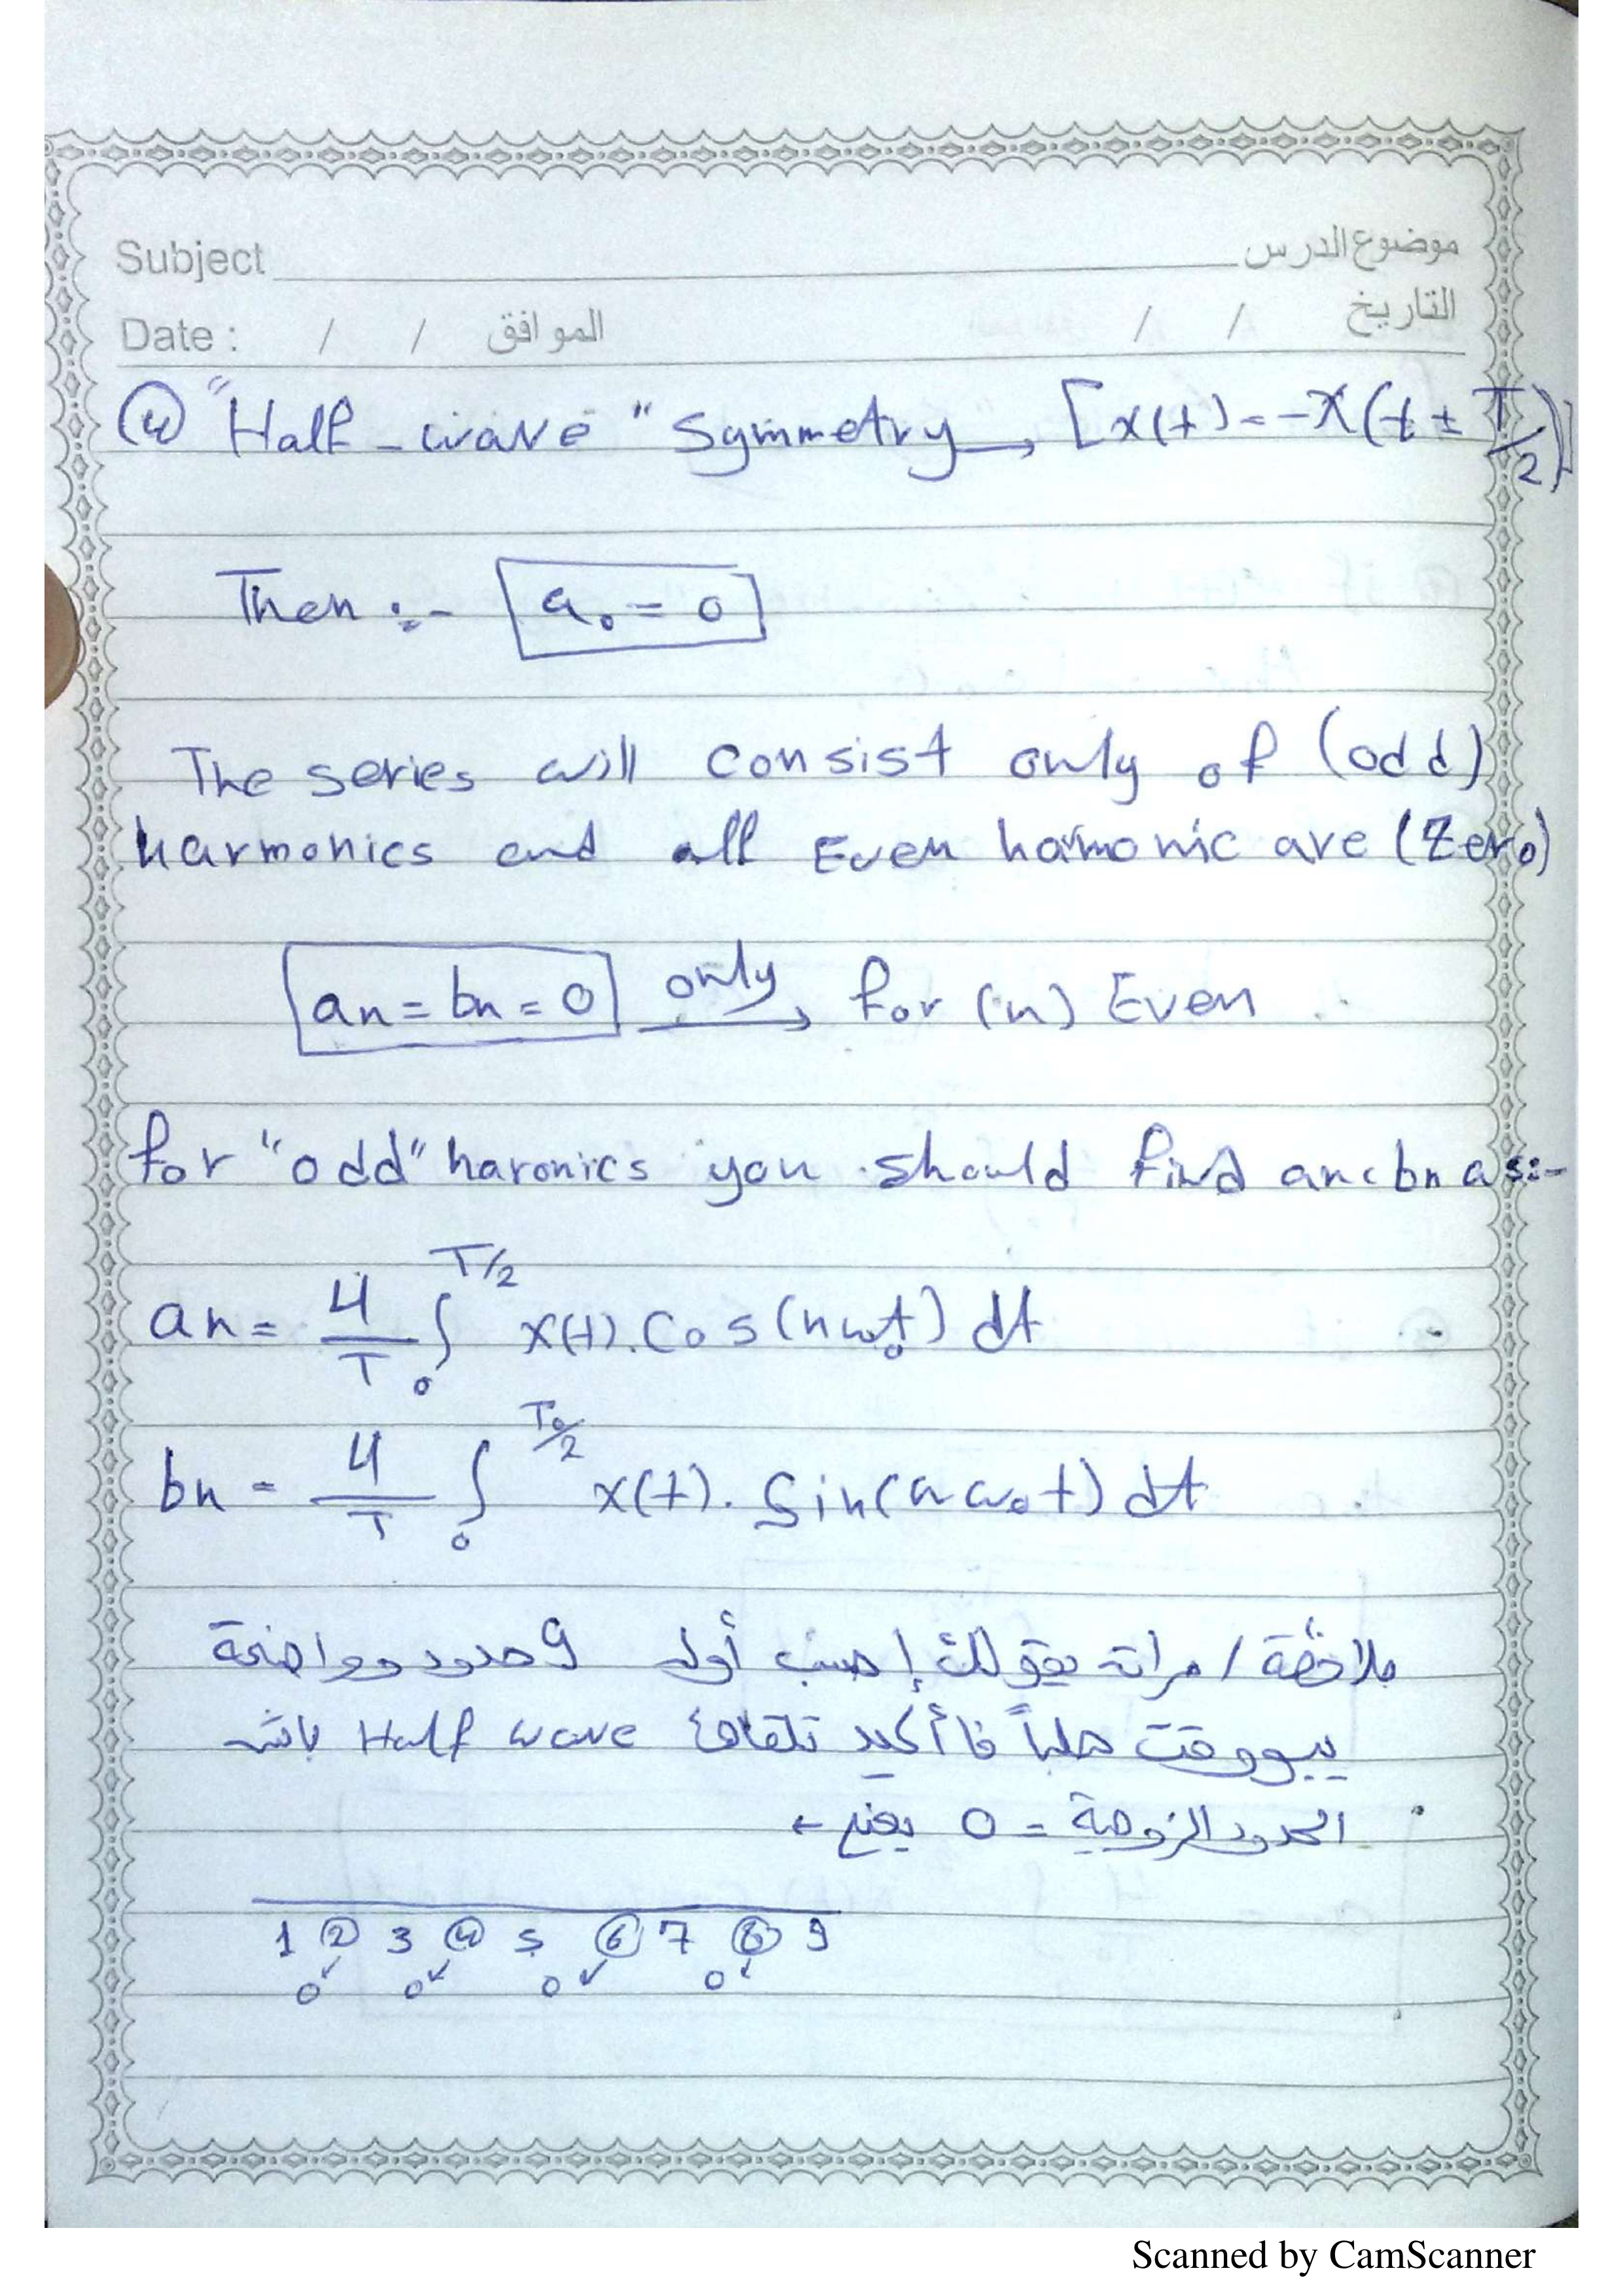 Subject موضوع الدرس
Date : / / الموافق / / التاريخ
④ "Half-wave" Symmetry → [x(t) = -x(t ± T/2)]
Then :- a₀ = 0
The series will consist only of (odd)
harmonics and all Even hamonic are (Zero)
an = bn = 0 only → for (n) Even
for "odd" haronics you should find an c bn as:-
an = 4/T ∫₀^T/2 x(t). Cos(nω₀t) dt
bn = 4/T ∫₀^T₀/2 x(t). Sin(nω₀t) dt
ملاحظة / مرات يقولك إحسب أول 9 حدود وواضحة
يبو وقت هلباً فا أكيد تلقاها Half wave باش
الحدود الزوجية = 0 يعني ←
1 ② 3 ④ 5 ⑥ 7 ⑧ 9
0 0 0 0
Scanned by CamScanner